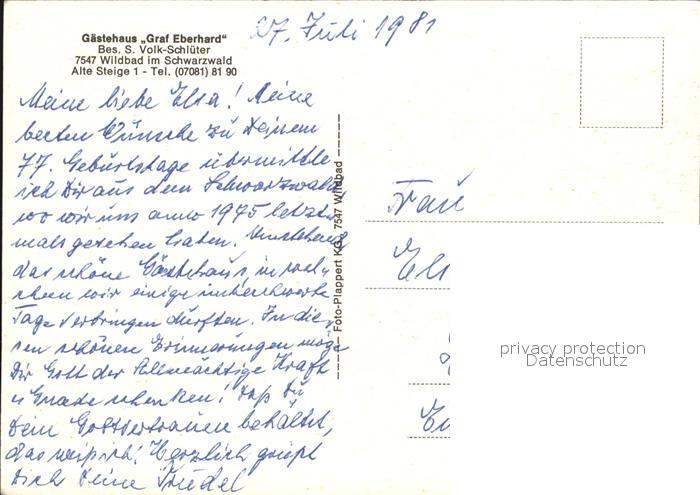 Gästehaus „Graf Eberhard"
Bes. S. Volk-Schlüter
7547 Wildbad im Schwarzwald
Alte Steige 1 - Tel. (07081) 81 90
27. Juli 1981
Meine liebe Elsa! Meine
besten Wünsche zu Deinem
77. Geburtstage übermittle
ich Dir aus dem Schwarzwald,
wo wir uns anno 1975 letzt-
mals gesehen haben. Umstehend
das schöne Gästehaus, in wel-
chem wir einige
Tage verbringen durften. In die-
sen schönen Erinnerungen möge
Dir Gott der Allmächtige Kraft
u. Gnade schenken! Daß Du
Dein Gottvertrauen behältst,
das weiß ich! Herzlich grüßt
Dich Deine Friedel
Foto-Plappert KG, 7547 Wildbad
Frau
Els
privacy protection
Datenschutz